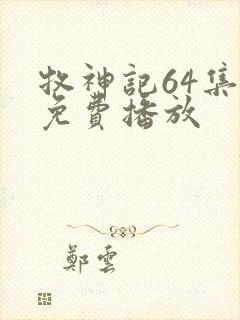 牧神記64集
免費播放
鄭雲